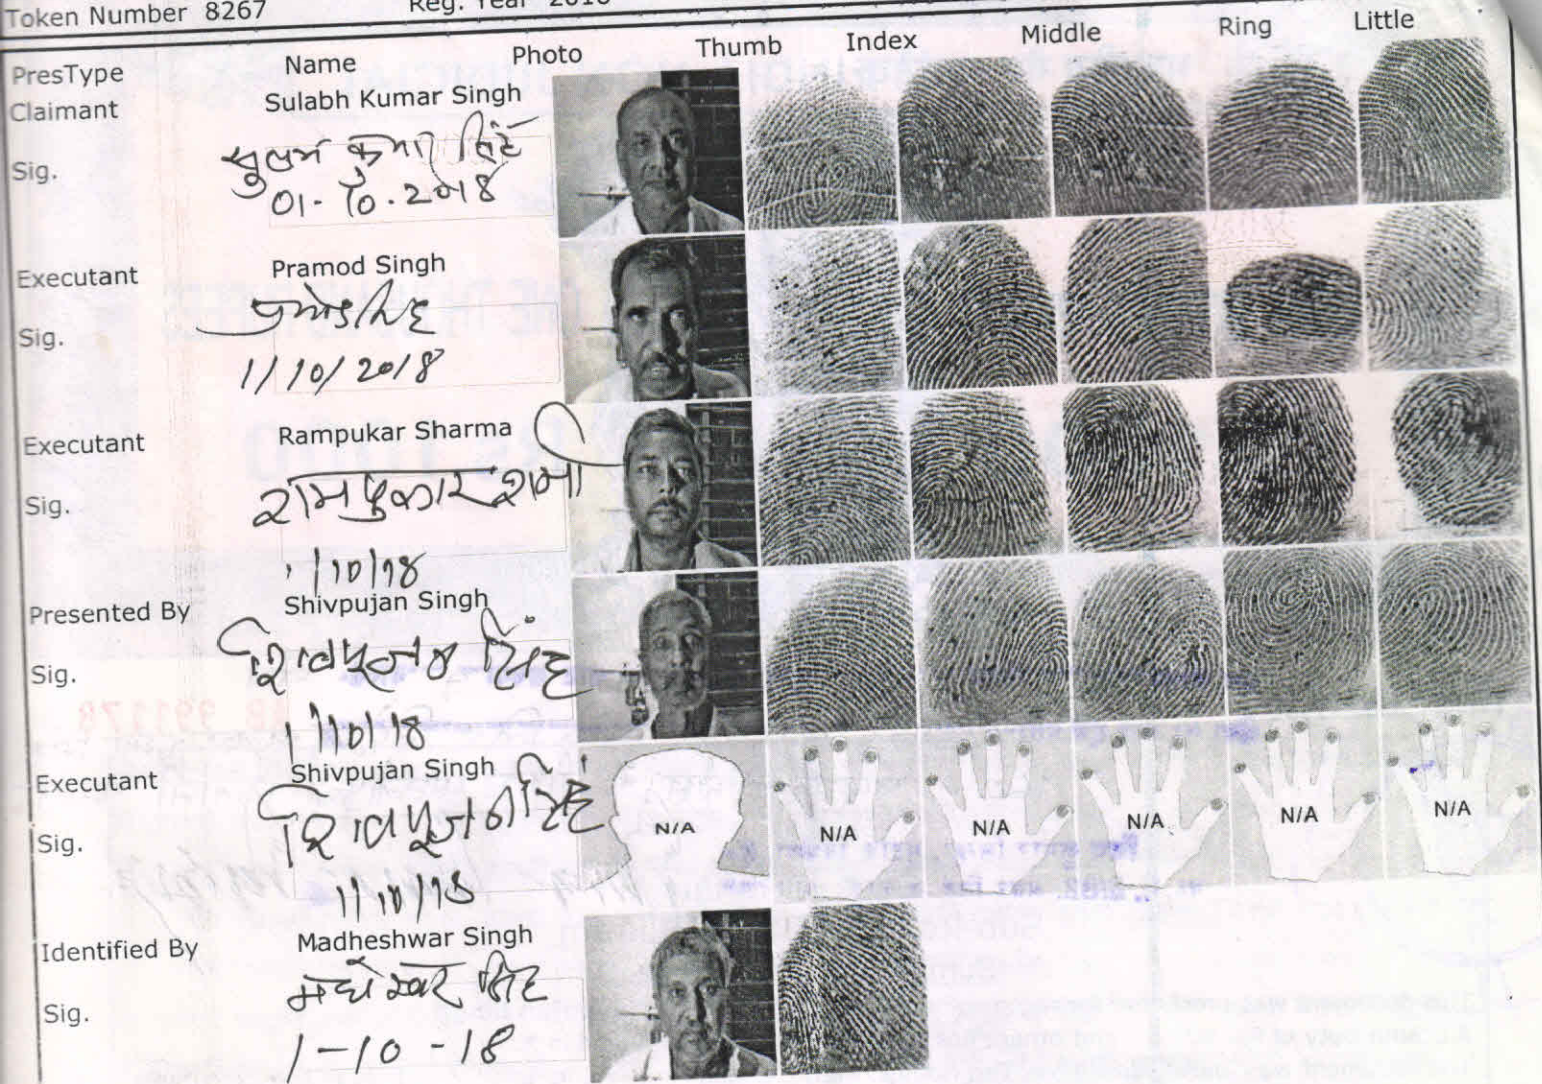 Token Number 8267
Reg. Year 2018
PresType Name Photo Thumb Index Middle Ring Little
Claimant Sulabh Kumar Singh
Sig. सुलभ कुमार सिंह
01-10-2018
Executant Pramod Singh
Sig. प्रमोद सिंह
1/10/2018
Executant Rampukar Sharma
Sig. रामपुकार शर्मा
1/10/18
Presented By Shivpujan Singh
Sig. शिवपुजन सिंह
1/10/18
Executant Shivpujan Singh
Sig. शिवपुजन सिंह
1/10/18
N/A N/A N/A N/A N/A N/A
Identified By Madheshwar Singh
Sig. मधेश्वर सिंह
1-10-18